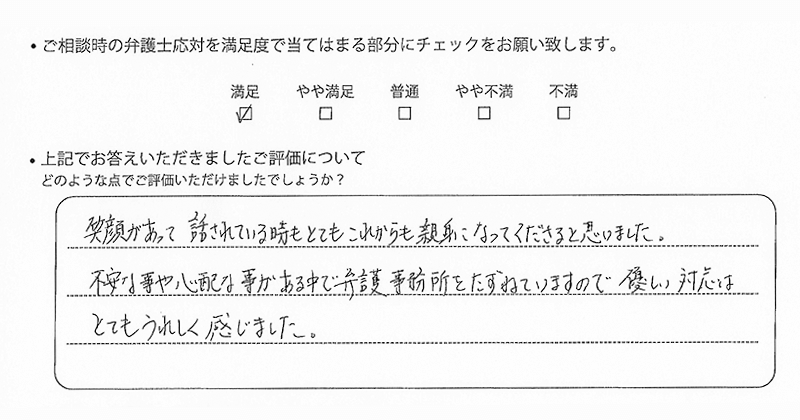 • ご相談時の弁護士応対を満足度で当てはまる部分にチェックをお願い致します。
満足 やや満足 普通 やや不満 不満
☑ □ □ □ □
• 上記でお答えいただきましたご評価について
どのような点でご評価いただけましたでしょうか？
笑顔があって 話されている時もとてもこれからも親身になってくださると思いました。
不安な事や心配な事がある中で弁護事務所をたずねていますので 優しい対応は
とてもうれしく感じました。